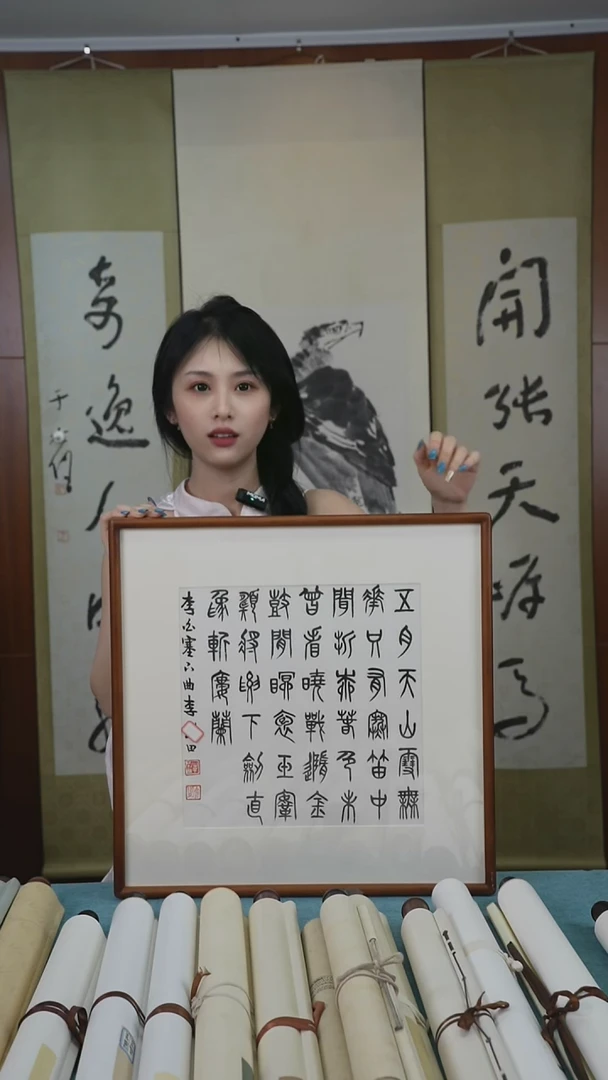 開张天岸馬
奇逸人
于右任
五月天山雪無
花只有寒笛中
聞折柳春色未
曾看曉戰隨金
鼓宵眠抱玉鞍
願將腰下劍直
為斬樓蘭
李白塞下曲 李